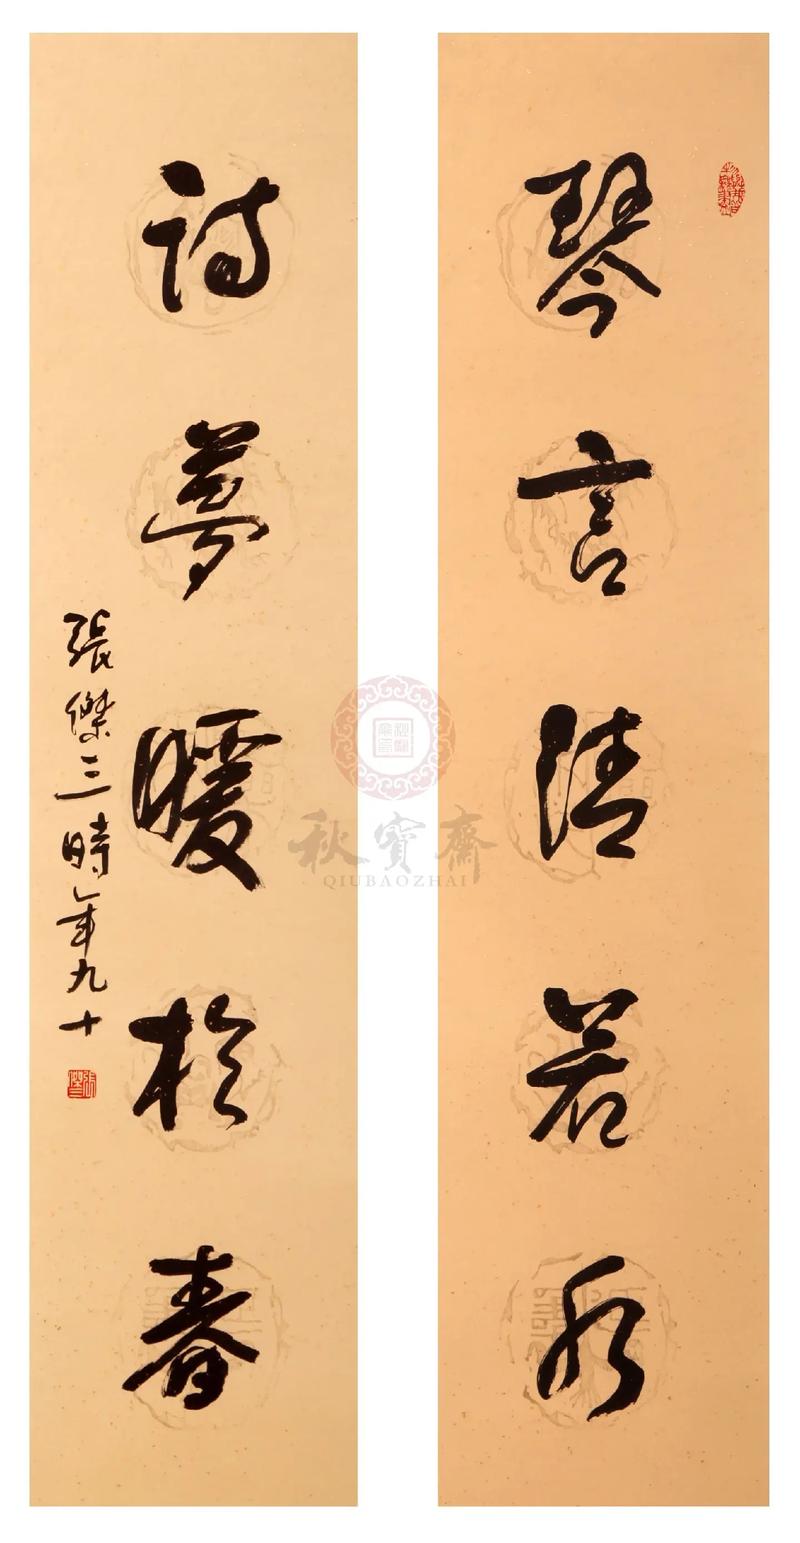 琴言清若水
詩夢暖於春
張傑三時年九十
秋寶齋
QIUBAOZHAI